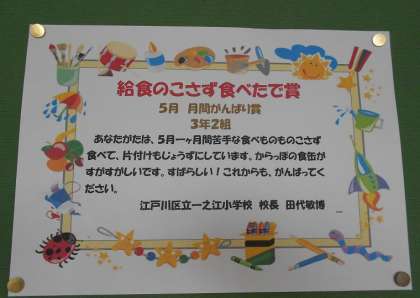 給食のこさず食べたで賞
5月　月間がんばり賞
3年2組
あなたがたは、5月一ヶ月間苦手な食べものものこさず
食べて、片付けもじょうずにしています。からっぽの食缶が
すがすがしいです。すばらしい！これからも、がんばってく
ださい。
江戸川区立一之江小学校　校長　田代敏博